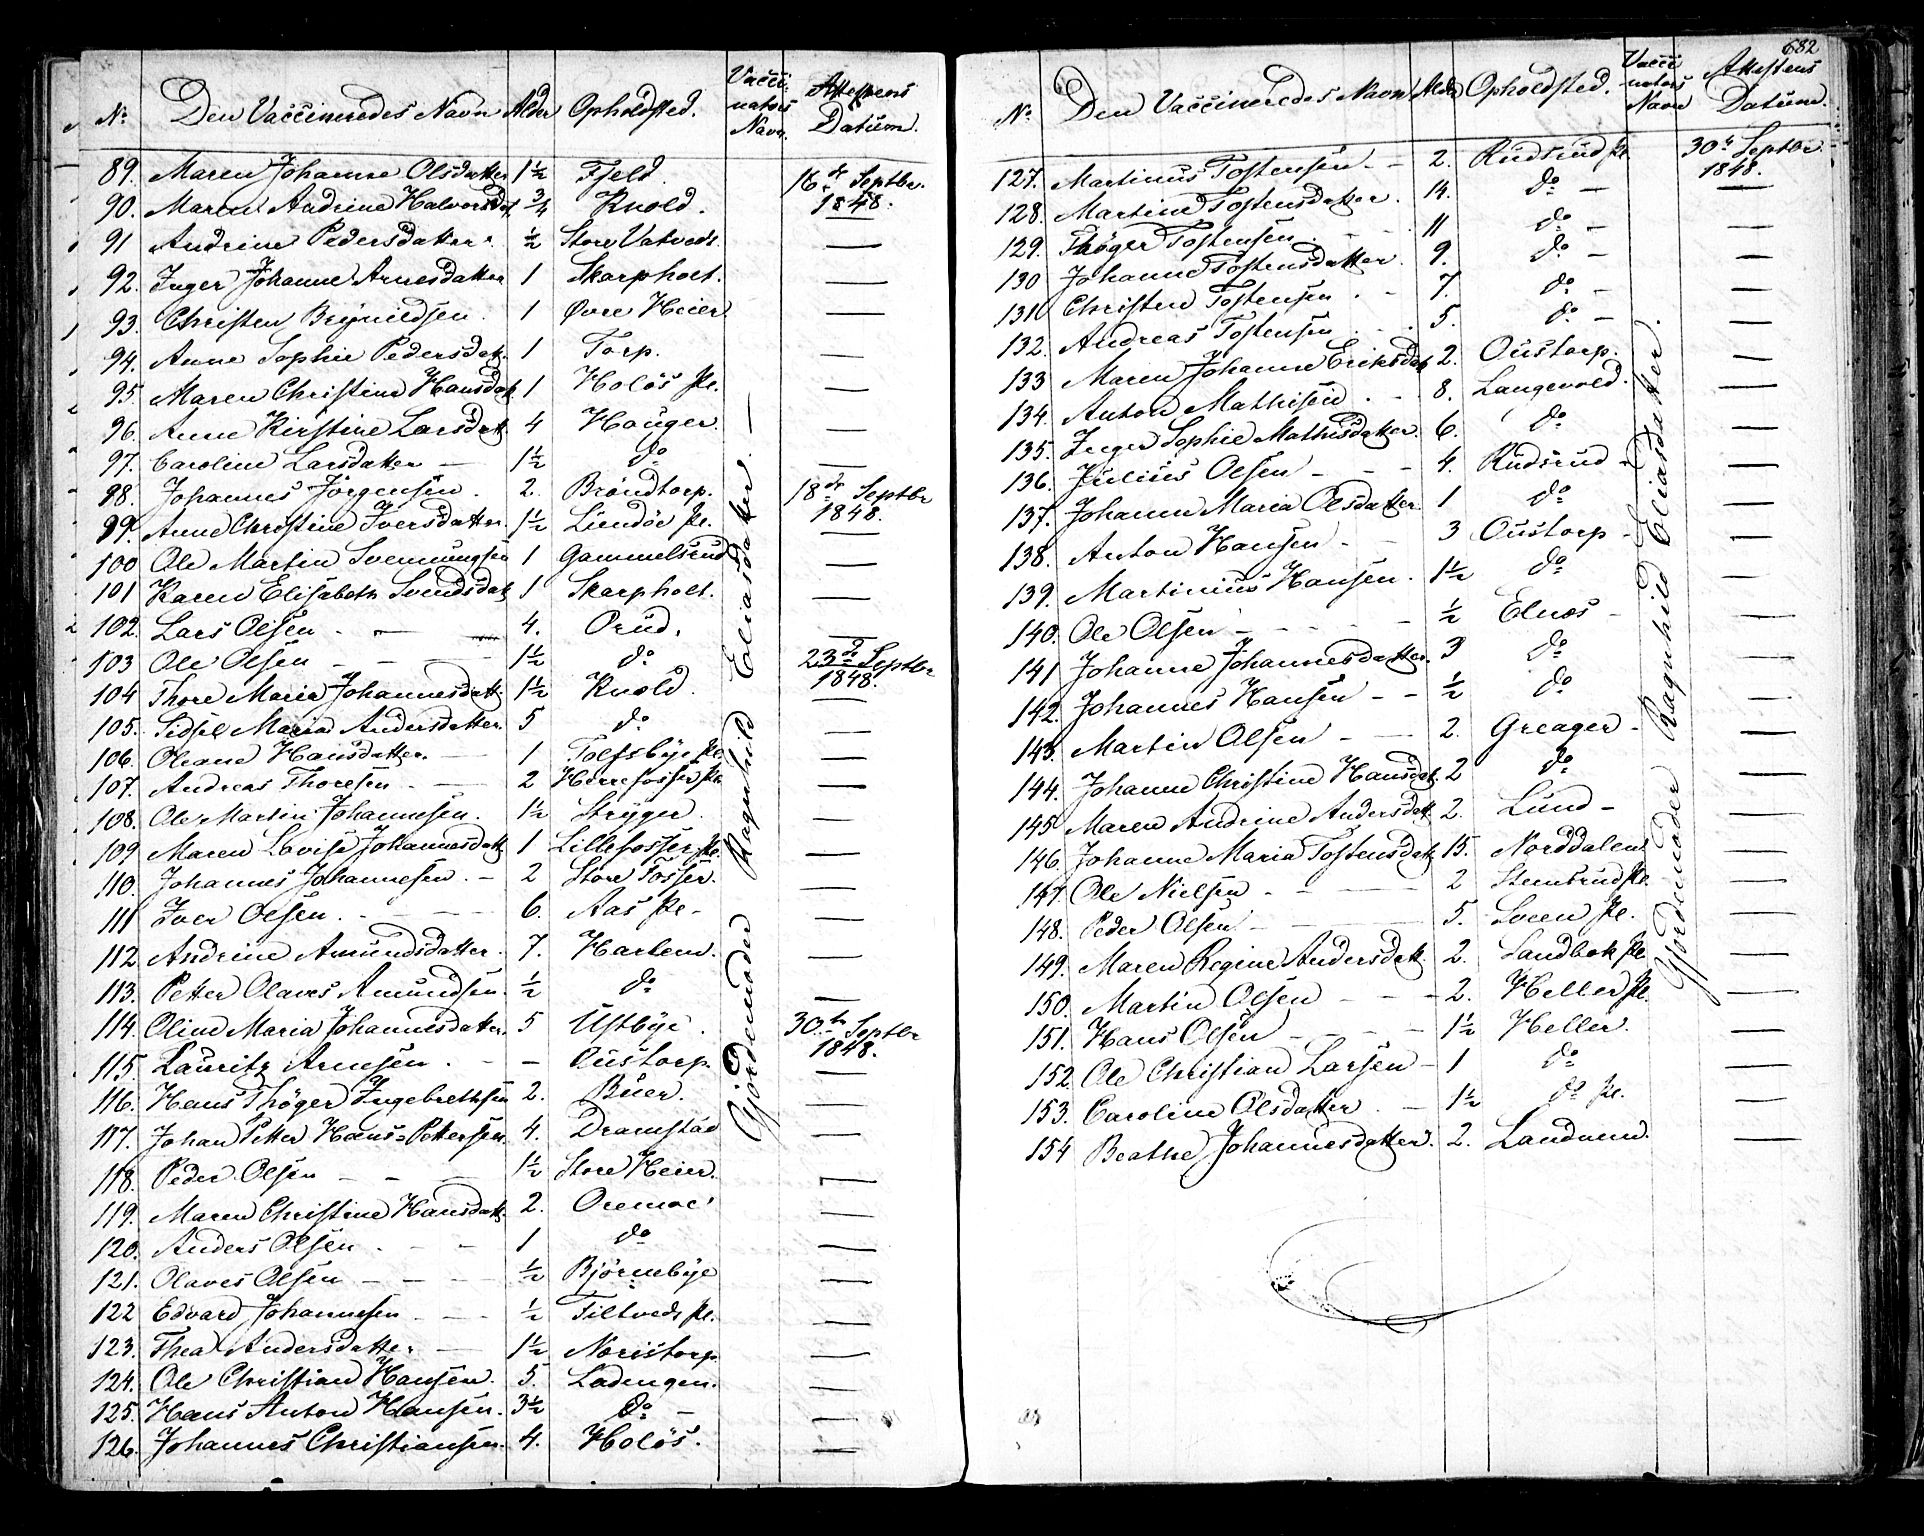 No. Den Vaccineredes Navn Alder Opholdsted. Vacci-nators Navn. Attestens Datum.
89. Maren Johanne Olsdatter 1½ Fjeld. 16de Septbr. 1848.
90. Maren Andrine Halvorsdat ¾ Knold.
91 Andrine Pedersdatter. ½ Store Vatvedt. —
92. Inger Johanne Arnesdatter 1 Skarpholt. —
93. Christen Brynildsen. 1 Øvre Heier —
94. Anne Sophie Pedersdat. 1 Torp. —
95. Maren Christine Hansdat 1 Holøs Pl. —
96. Anne Kirstine Larsdatt. 4 Hauger. —
97. Caroline Larsdatter — 1½ do —
98. Johannes Jörgensen. 2. Bröndtorp. 18de Septbr 1848.
99. Anne Christine Iversdatter. 1½ Liendöe Pl. —
100 Ole Martin Svenungsen 1 Gammelsrud —
101 Karen Elisabeth Svendsdat 1 Skarpholt. —
102. Lars Olsen . — — 4. Orud. —
103 Ole Olsen — — — 1½ do 23de Septbr 1848.
104 Thore Maria Johannesdatt. 1½ Knold. —
105. Sidsel Maria Andersdatter. 5 do —
106. Oleane Hansdatter. — 1 Tolfsbye Pl. —
107. Andreas Thoresen . — 2 Herrefosser Pl. —
108. Ole Martin Johannesen. 1½ Stryger. —
109 Maren Lovise Johannesdatt 1 Lillefosser Pl. —
110. Johannes Johannesen. — 2 Store Fosser. —
111 Iver Olsen. — — — 6. Aas Pl. —
112 Andrine Amundsdatter. 7. Harlem. —
113. Petter Olaves Amundsen. ½ do —
114. Oline Maria Johannesdatter. 5 Ustbye. 30te Septbr 1848.
115. Lauritz Arnesen. — — Oustorp. —
116. Hans Thöger Ingebrethsen 2. Buer. —
117. Johan Petter Hans=Pettersen. 4. Dramstad —
118. Peder Olsen — — — 1½ Store Heier. —
119. Maren Christine Hansdatt. 2. Oremoe —
120. Anders Olsen . — — 1 do —
121. Olaves Olsen — — — ½ Björnebye —
122 Edvard Johannesen — — ½ Tiltvedt Pl. —
123. Thea Andersdatter — 1½ Noristorp —
124. Ole Christian Hansen. 5. Ladengen. —
125. Hans Anton Hansen. 3½ do — —
126. Johannes Christiansen. 4. Holøs. —
Gjordemoder Ragnhild Eliasdatter. —
682
No. Den Vaccineredes Navn Alder Opholdsted. Vacci nators Navn Attestens Datum.
127. Martinus Tostensen — — 2. Rudsrud Pl. 30te Septbr 1848.
128. Martine Tostensdatter. 14. do — —
129. Thöger Tostensen. 11 do — —
130 Johanne Tostensdatter. 9. do — —
131 Christen Tostensen . — 7. do — —
132. Andreas Tostensen . . . 5. do — —
133 Maren Johanne Eriksdat 2. Oustorp. —
134. Anton Mathisen . — 8. Langevold. —
135. Inger Sophie Mathisdatter. 6. do —
136. Julius Olsen — — — 4. Rudsrud — —
137. Johanne Maria Olsdatter. 1 do —
138. Anton Hansen — — 3 Oustorp — —
139. Martinius Hansen. 1½ do —
140. Ole Olsen — — — — ½ Elnæs — —
141 Johanne Johannesdatter. 3 do —
142. Johannes Hansen — — ½ do —
143. Martin Olsen — — 2. Greager — —
144. Johanne Christine Hansdat. 2 do —
145 Maren Andrine Andersdatt 2. Lund — —
146. Johanne Maria Tostensdatt 15. Norddalen —
147. Ole Nielsen — — — 2 Stensrud Pl. —
148. Peder Olsen — — 5. Sveen Pl. —
149. Maren Regine Andersdatt 2. Sandbæk Pl. —
150. Martin Olsen — — — 2. Heller Pl. —
151. Hans Olsen — — — 1½ Heller. —
152 Ole Christian Larsen — 1 do —
153. Caroline Olsdatter . — 1½ do Pl. —
154 Beathe Johannesdatter. 2. Landuem. —
Gjordemoder Ragnhild Eliasdatter.